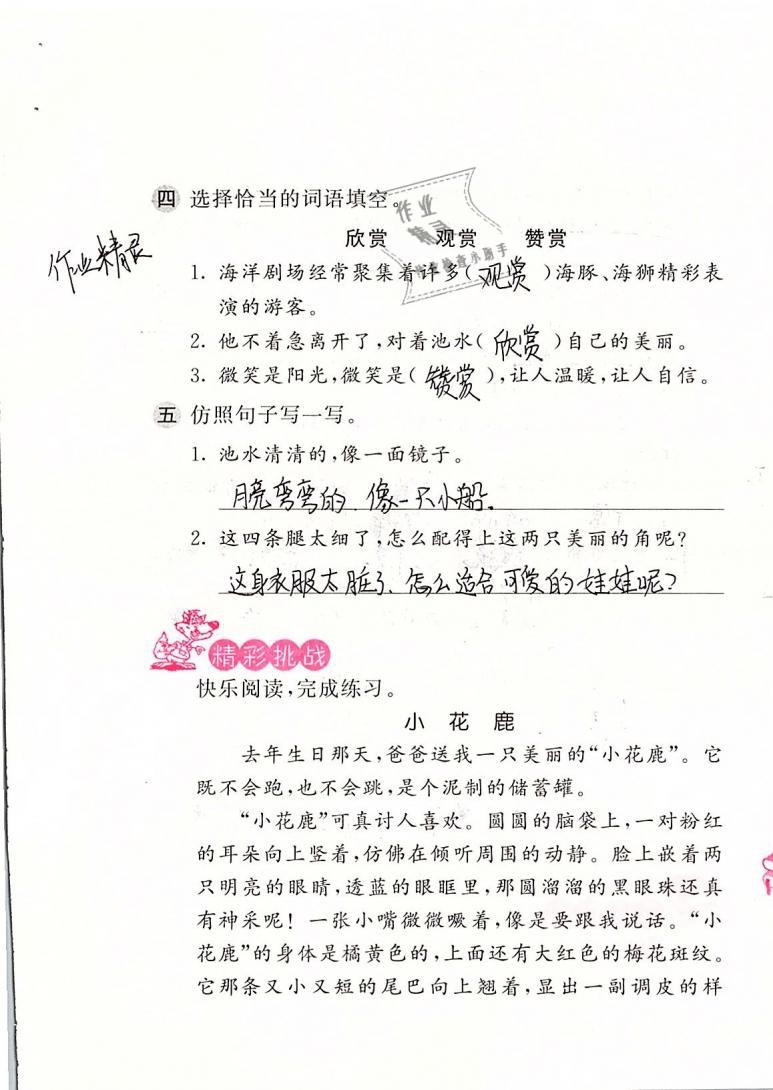 四 选择恰当的词语填空。
欣赏 观赏 赞赏
作业精灵
1. 海洋剧场经常聚集着许多(观赏)海豚、海狮精彩表
演的游客。
2. 他不着急离开了,对着池水(欣赏)自己的美丽。
3. 微笑是阳光,微笑是(赞赏),让人温暖,让人自信。
五 仿照句子写一写。
1. 池水清清的,像一面镜子。
弯弯的,像一只小船。
2. 这四条腿太细了,怎么配得上这两只美丽的角呢?
这身衣服太脏了、怎么适合可爱的娃娃呢?
精彩挑战
快乐阅读,完成练习。
小花鹿
去年生日那天,爸爸送我一只美丽的“小花鹿”。它
既不会跑,也不会跳,是个泥制的储蓄罐。
“小花鹿”可真讨人喜欢。圆圆的脑袋上,一对粉红
的耳朵向上竖着,仿佛在倾听周围的动静。脸上嵌着两
只明亮的眼睛,透蓝的眼眶里,那圆溜溜的黑眼珠还真
有神采呢!一张小嘴微微噘着,像是要跟我说话。“小
花鹿”的身体是橘黄色的,上面还有大红色的梅花斑纹。
它那条又小又短的尾巴向上翘着,显出一副调皮的样